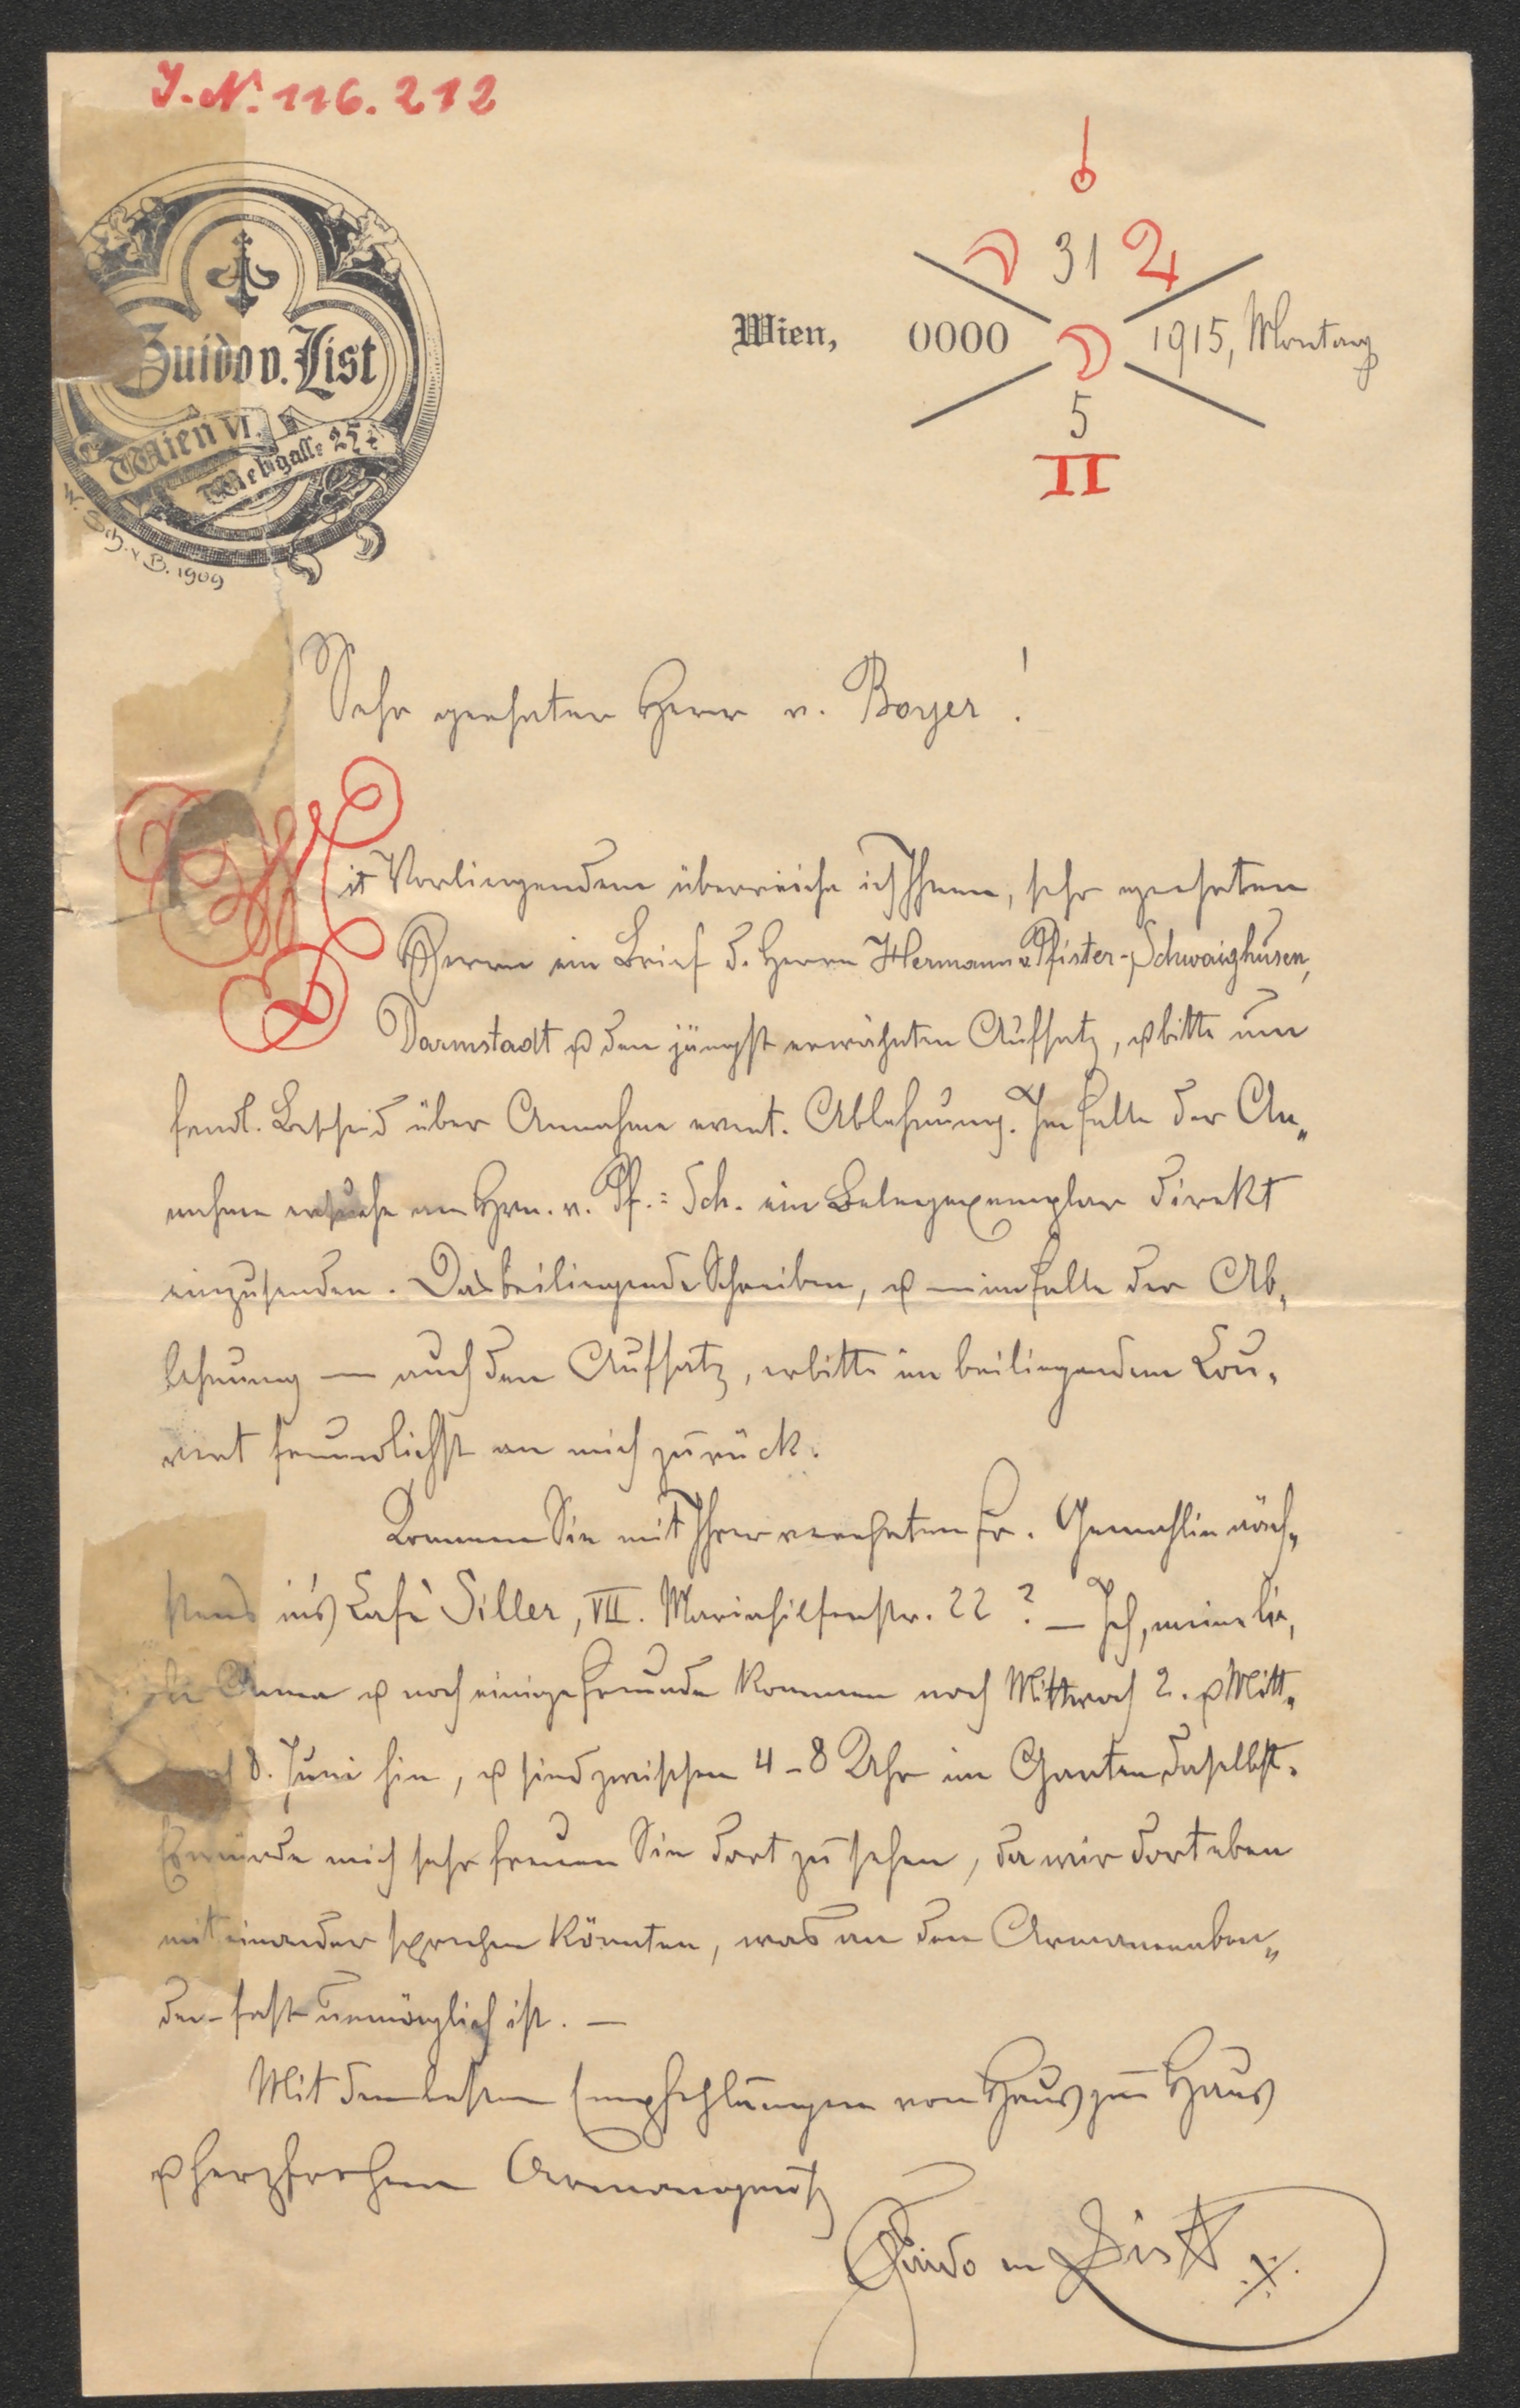 J.-N: 116.212
Guido v. List
Wien VI.
Webgasse 25
W. Sch. v B. 1909
31
Wien, 0000 1915, Montag
5
II
Sehr geehrter Herr v. Boyer!
Mit Vorliegendem überreiche ich Ihnen, sehr geehrter
Herr ein Brief d. Herrn Hermann v. Pfister-Schwaighusen,
Darmstadt u den jüngst erwähnten Aufsatz, u bitte um
frndl. Bescheid über Annahme event. Ablehnung. Im Falle der An„
nahme ersuche an Hrn. v. Pf.=Sch. ein Belegexemplar direkt
einzusenden. Das beiliegende Schreiben, u — im Falle der Ab„
lehnung — auch den Aufsatz, erbitte im beiliegendem Cou„
vert freundlichst an mich zurück.
Kommen Sie mit Ihrer verehrten Fr. Gemahlin näch„
stens in's Café Siller, VII. Mariahilferstr. 22? — Ich, meine lie„
be Anna u noch einige Freunde kommen noch Mittwoch 2. u Mitt„
8. Juni hin, u sind zwischen 4–8 Uhr im Garten daselbst.
Es würde mich sehr freuen Sie dort zu sehen, da wir dort eben
miteinander sprechen könnten, was an den Armanenaben„
den fast unmöglich ist. —
Mit den besten Empfehlungen von Haus zu Haus
u herzfrohem Armangruß
Guido von List